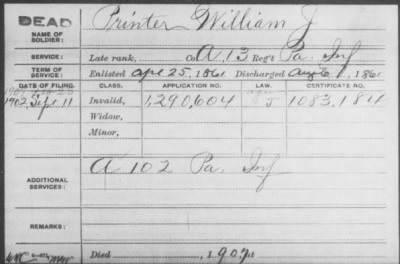 DEAD
Printer William J
NAME OF
SOLDIER:
SERVICE:
Late rank, Co A, 13 Reg't Pa. Inf
TERM OF
SERVICE:
Enlisted Apl 25, 1861 Discharged Aug 6, 1861
DATE OF FILING. CLASS. APPLICATION NO. LAW. CERTIFICATE NO.
1902, Sept. 11 Invalid, 1,290,604 J 1083,184
Widow,
Minor,
A 102 Pa. Inf
ADDITIONAL
SERVICES:
REMARKS:
Died 1907